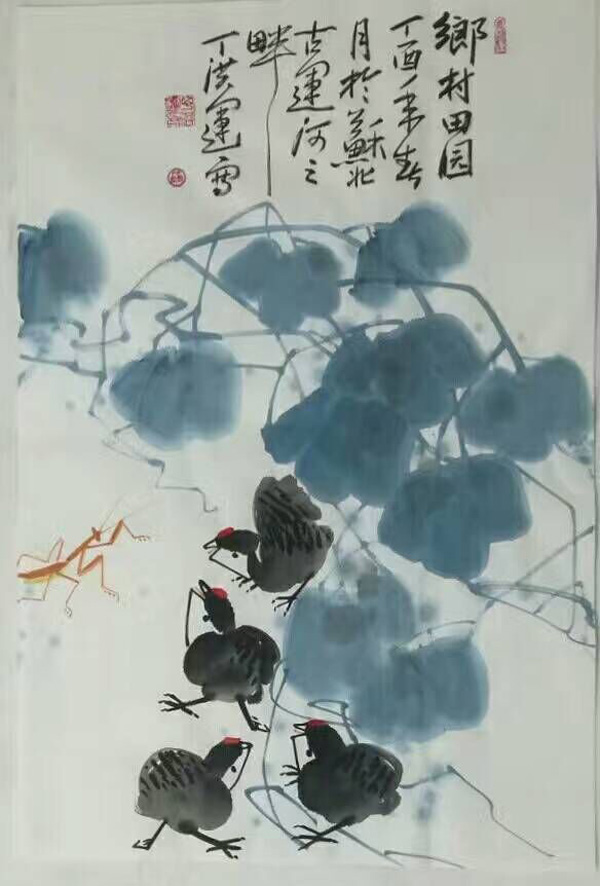 鄉村田园
丁酉年春
月於苏蘇北
古運河之
畔
丁洪運寫